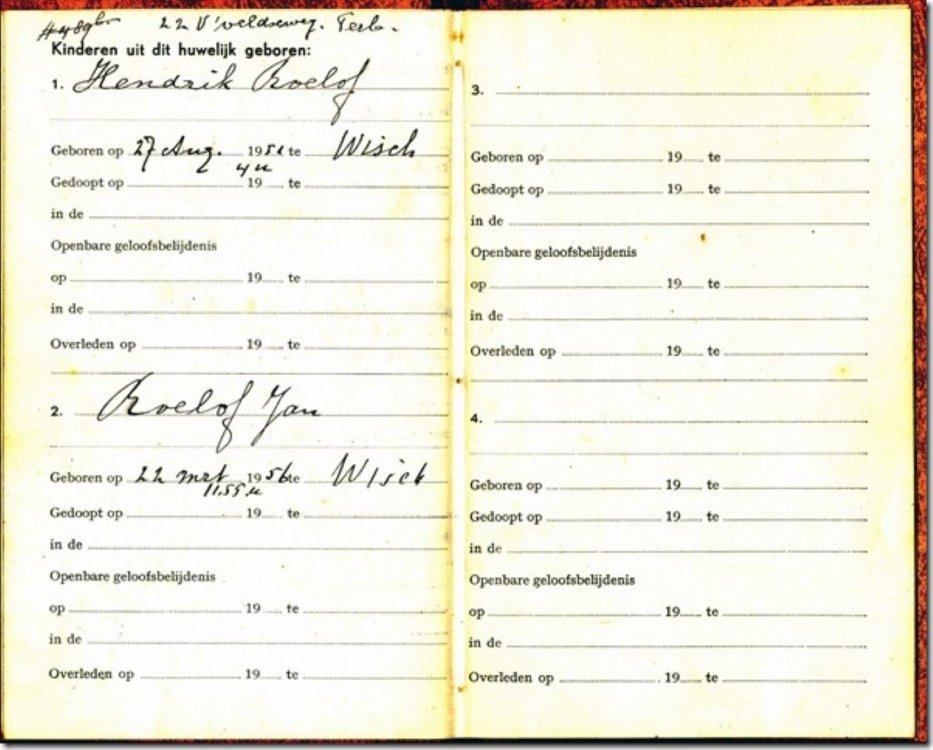 22 V'veldseweg. Terb.
Kinderen uit dit huwelijk geboren:
1. Hendrik Roelof
Geboren op 27 Aug. 1951 te Wisch
4 u
Gedoopt op 19 te
in de
Openbare geloofsbelijdenis
op 19 te
in de
Overleden op 19 te
2. Roelof Jan
Geboren op 22 mrt 1956 te Wisch
11.55 u
Gedoopt op 19 te
in de
Openbare geloofsbelijdenis
op 19 te
in de
Overleden op 19 te
3.
Geboren op 19 te
Gedoopt op 19 te
in de
Openbare geloofsbelijdenis
op 19 te
in de
Overleden op 19 te
4.
Geboren op 19 te
Gedoopt op 19 te
in de
Openbare geloofsbelijdenis
op 19 te
in de
Overleden op 19 te